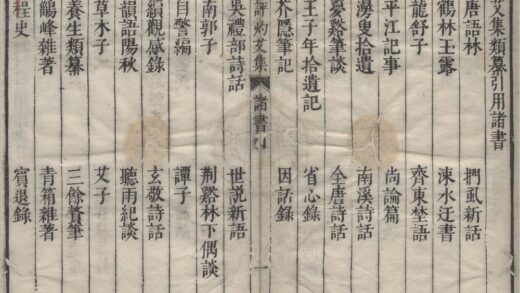 艾集類纂引用諸書
唐語林　捫虱新話
鶴林玉露　涑水迂書
龍舒子　齊東埜語
平江記事　尚論篇
澇叟拾遺　南溪詩話
夢谿筆談　全唐詩話
王子年拾遺記　省心錄
芥隱筆記　因話錄
評灼艾集　諸書　一
吳禮部詩話　世說新語
南郭子　荆谿林下偶談
自警編　譚子
續觀感錄　玄敬詩話
韻語陽秋　聽雨紀談
草木子　艾子
養生類纂　三餘贅筆
鶴峰雜著　青箱雜著
程史　賓退錄